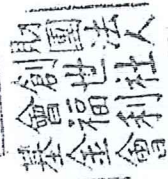 財團法人
創世社
會福利
基金會